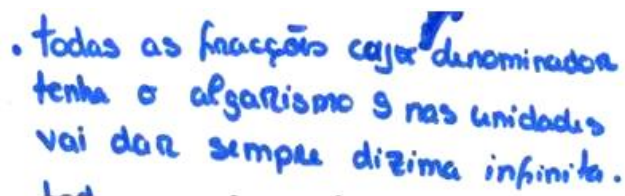 . todas as fracções cujo denominador
tenha o algarismo 9 nas unidades
vai dar sempre dizima infinita.